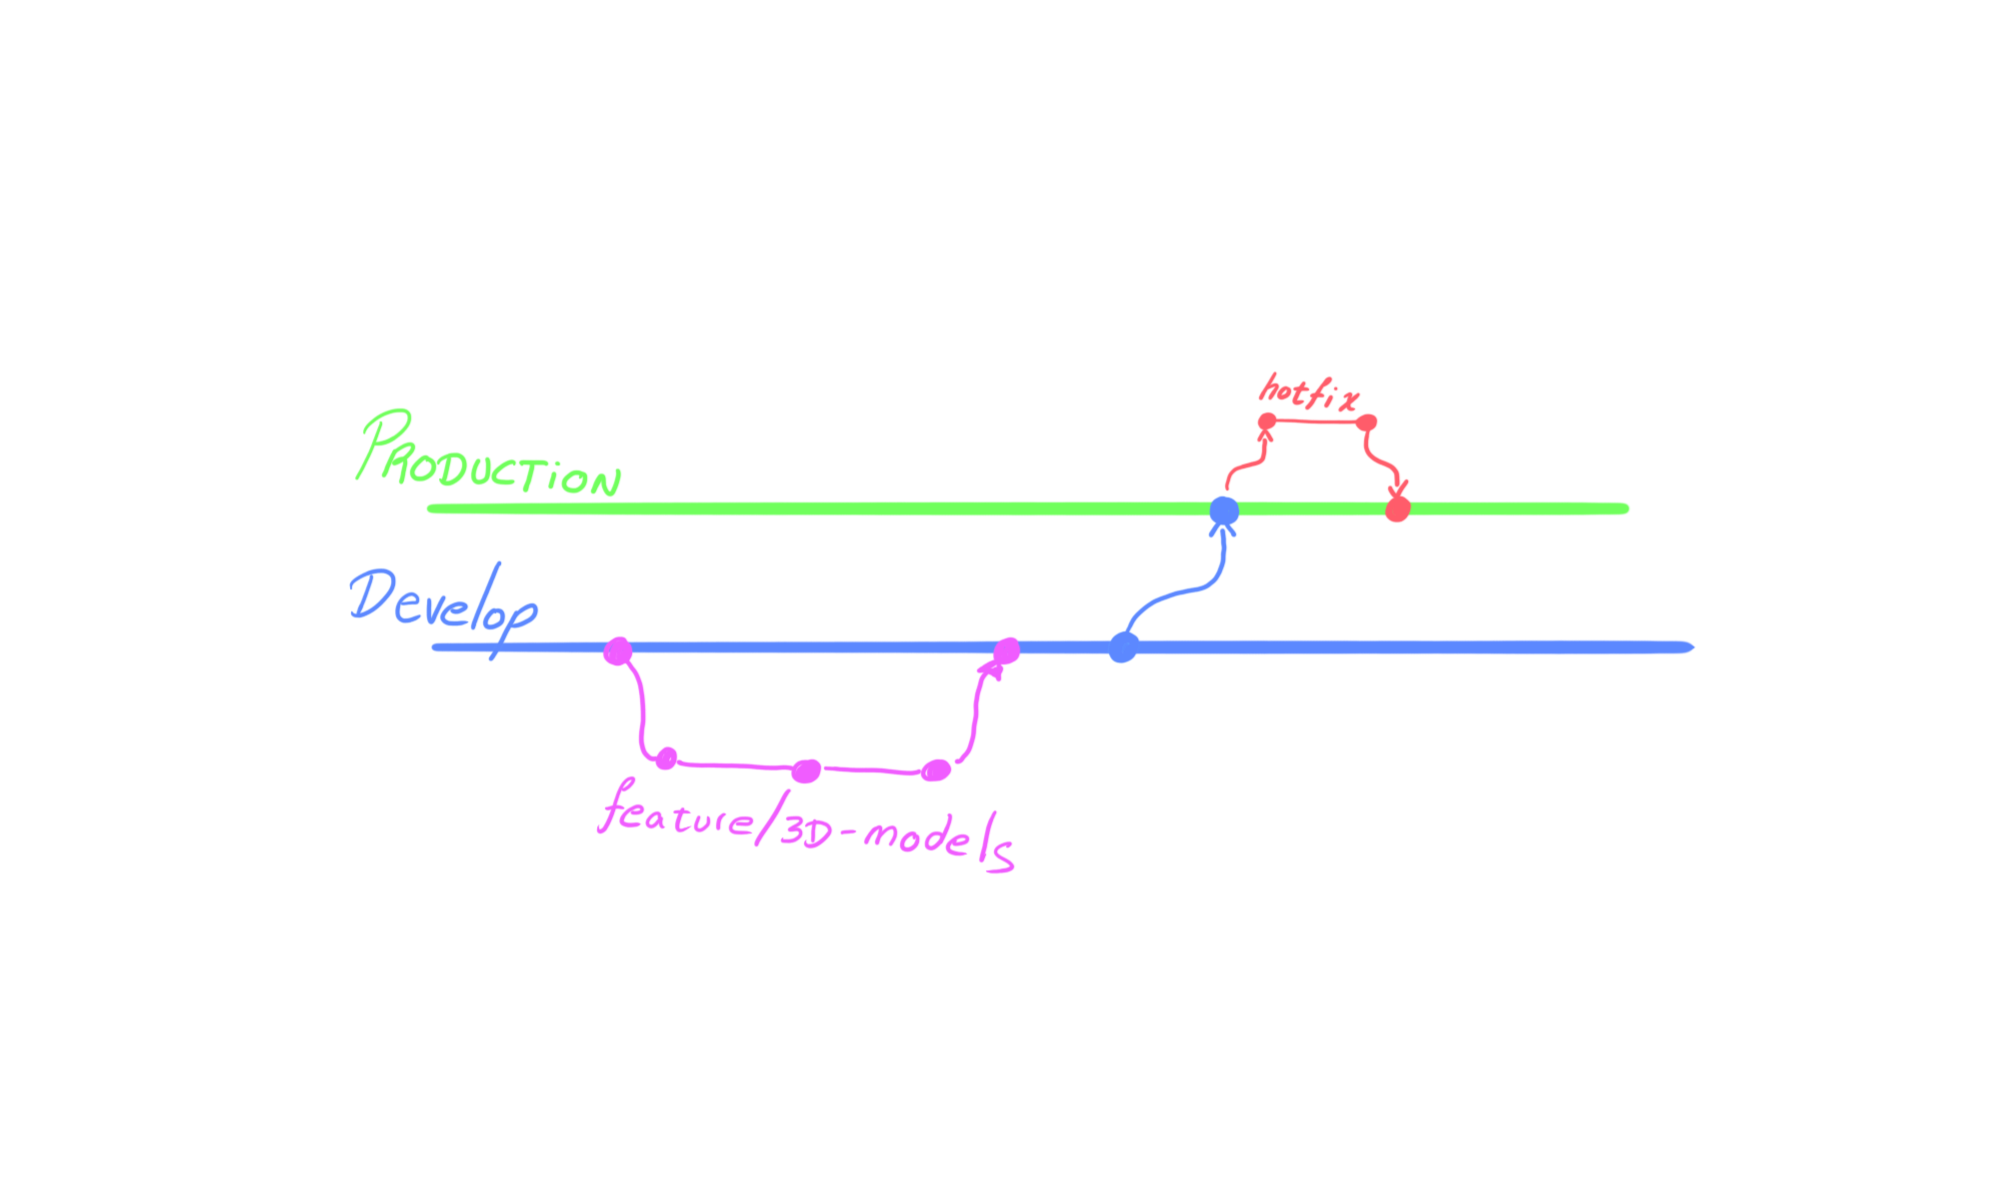 hotfix
PRODUCTiON
Develop
feature/3D-models